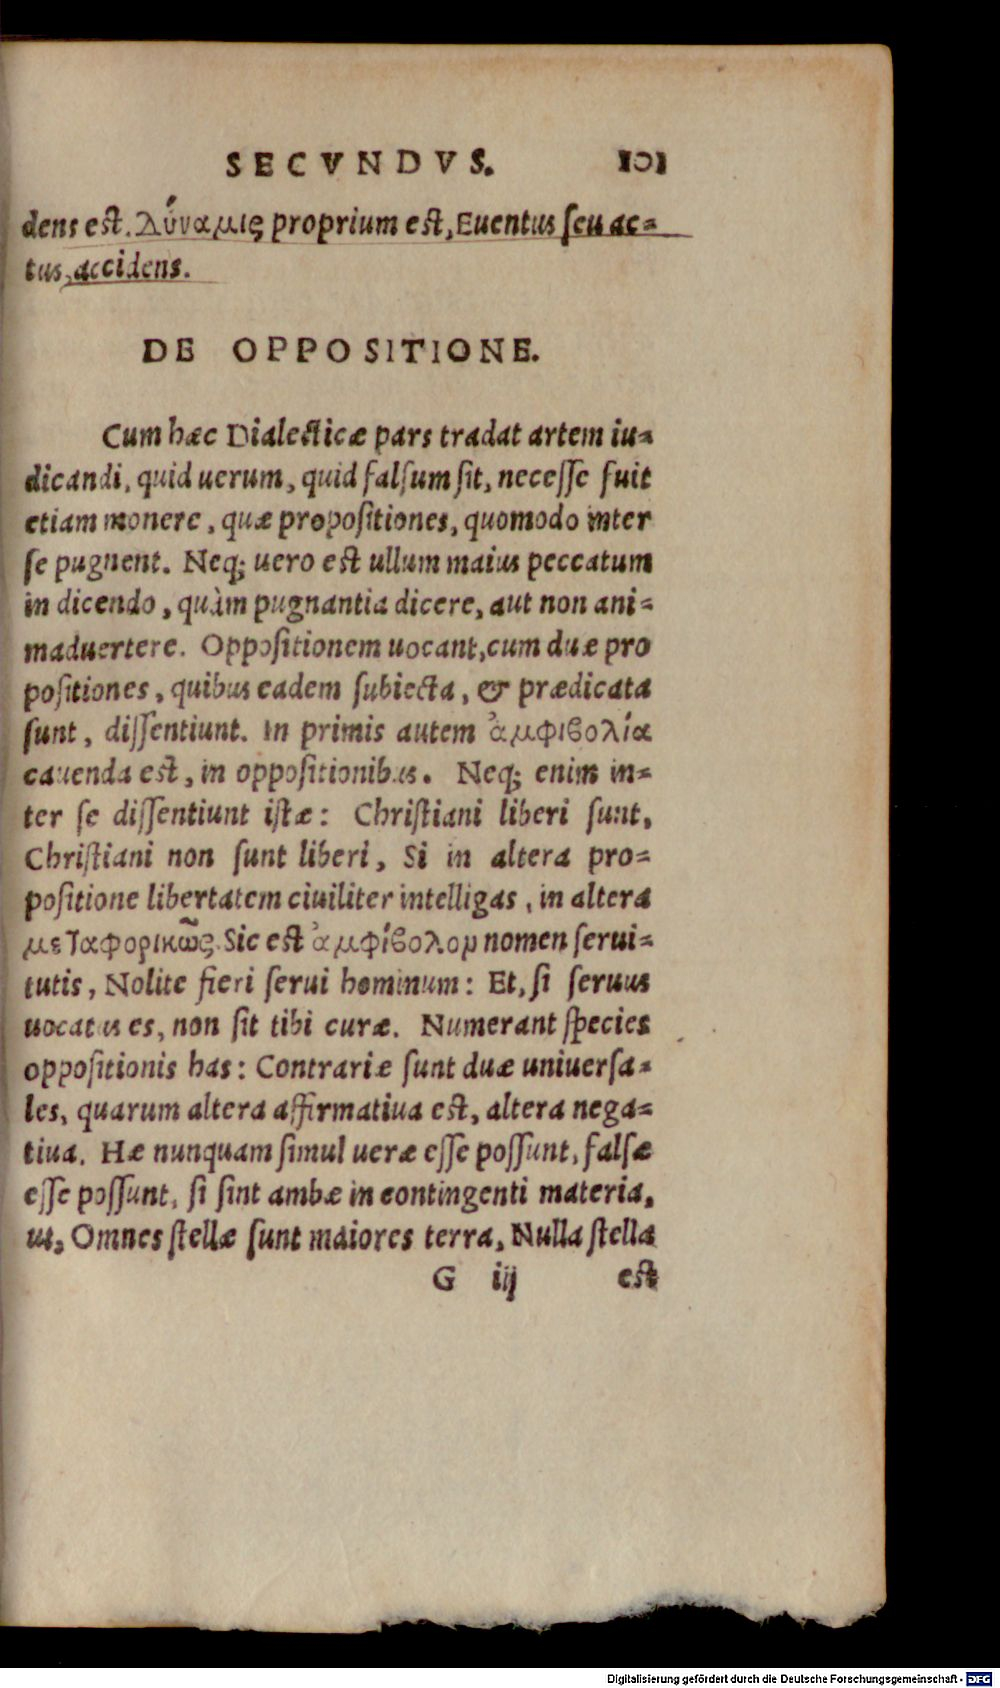 SECVNDVS. 101
dens est. λύναμις proprium est, Euentus seu ac-
tus, accidens.
DE OPPOSITIONE.
Cum hæc Dialecticæ pars tradat artem iu-
dicandi, quid uerum, quid falsum sit, necesse fuit
etiam monere, quæ propositiones, quomodo inter
se pugnent. Neq; uero est ullum maius peccatum
in dicendo, quàm pugnantia dicere, aut non ani-
maduertere. Oppositionem uocant, cum duæ pro
positiones, quibus eadem subiecta, & prædicata
sunt, dissentiunt. In primis autem ἀμφιβολία
cauenda est, in oppositionibus. Neq; enim in-
ter se dissentiunt istæ: Christiani liberi sunt,
Christiani non sunt liberi, Si in altera pro-
positione libertatem ciuiliter intelligas, in altera
μεταφορικῶς. Sic est ἀμφίβολον nomen serui-
tutis, Nolite fieri serui hominum: Et, si seruus
uocatus es, non sit tibi curæ. Numerant species
oppositionis has: Contrariæ sunt duæ uniuersa-
les, quarum altera affirmatiua est, altera nega-
tiua. Hæ nunquam simul ueræ esse possunt, falsæ
esse possunt, si sint ambæ in contingenti materia,
ut, Omnes stellæ sunt maiores terra, Nulla stella
G iij est
Digitalisierung gefördert durch die Deutsche Forschungsgemeinschaft - DFG